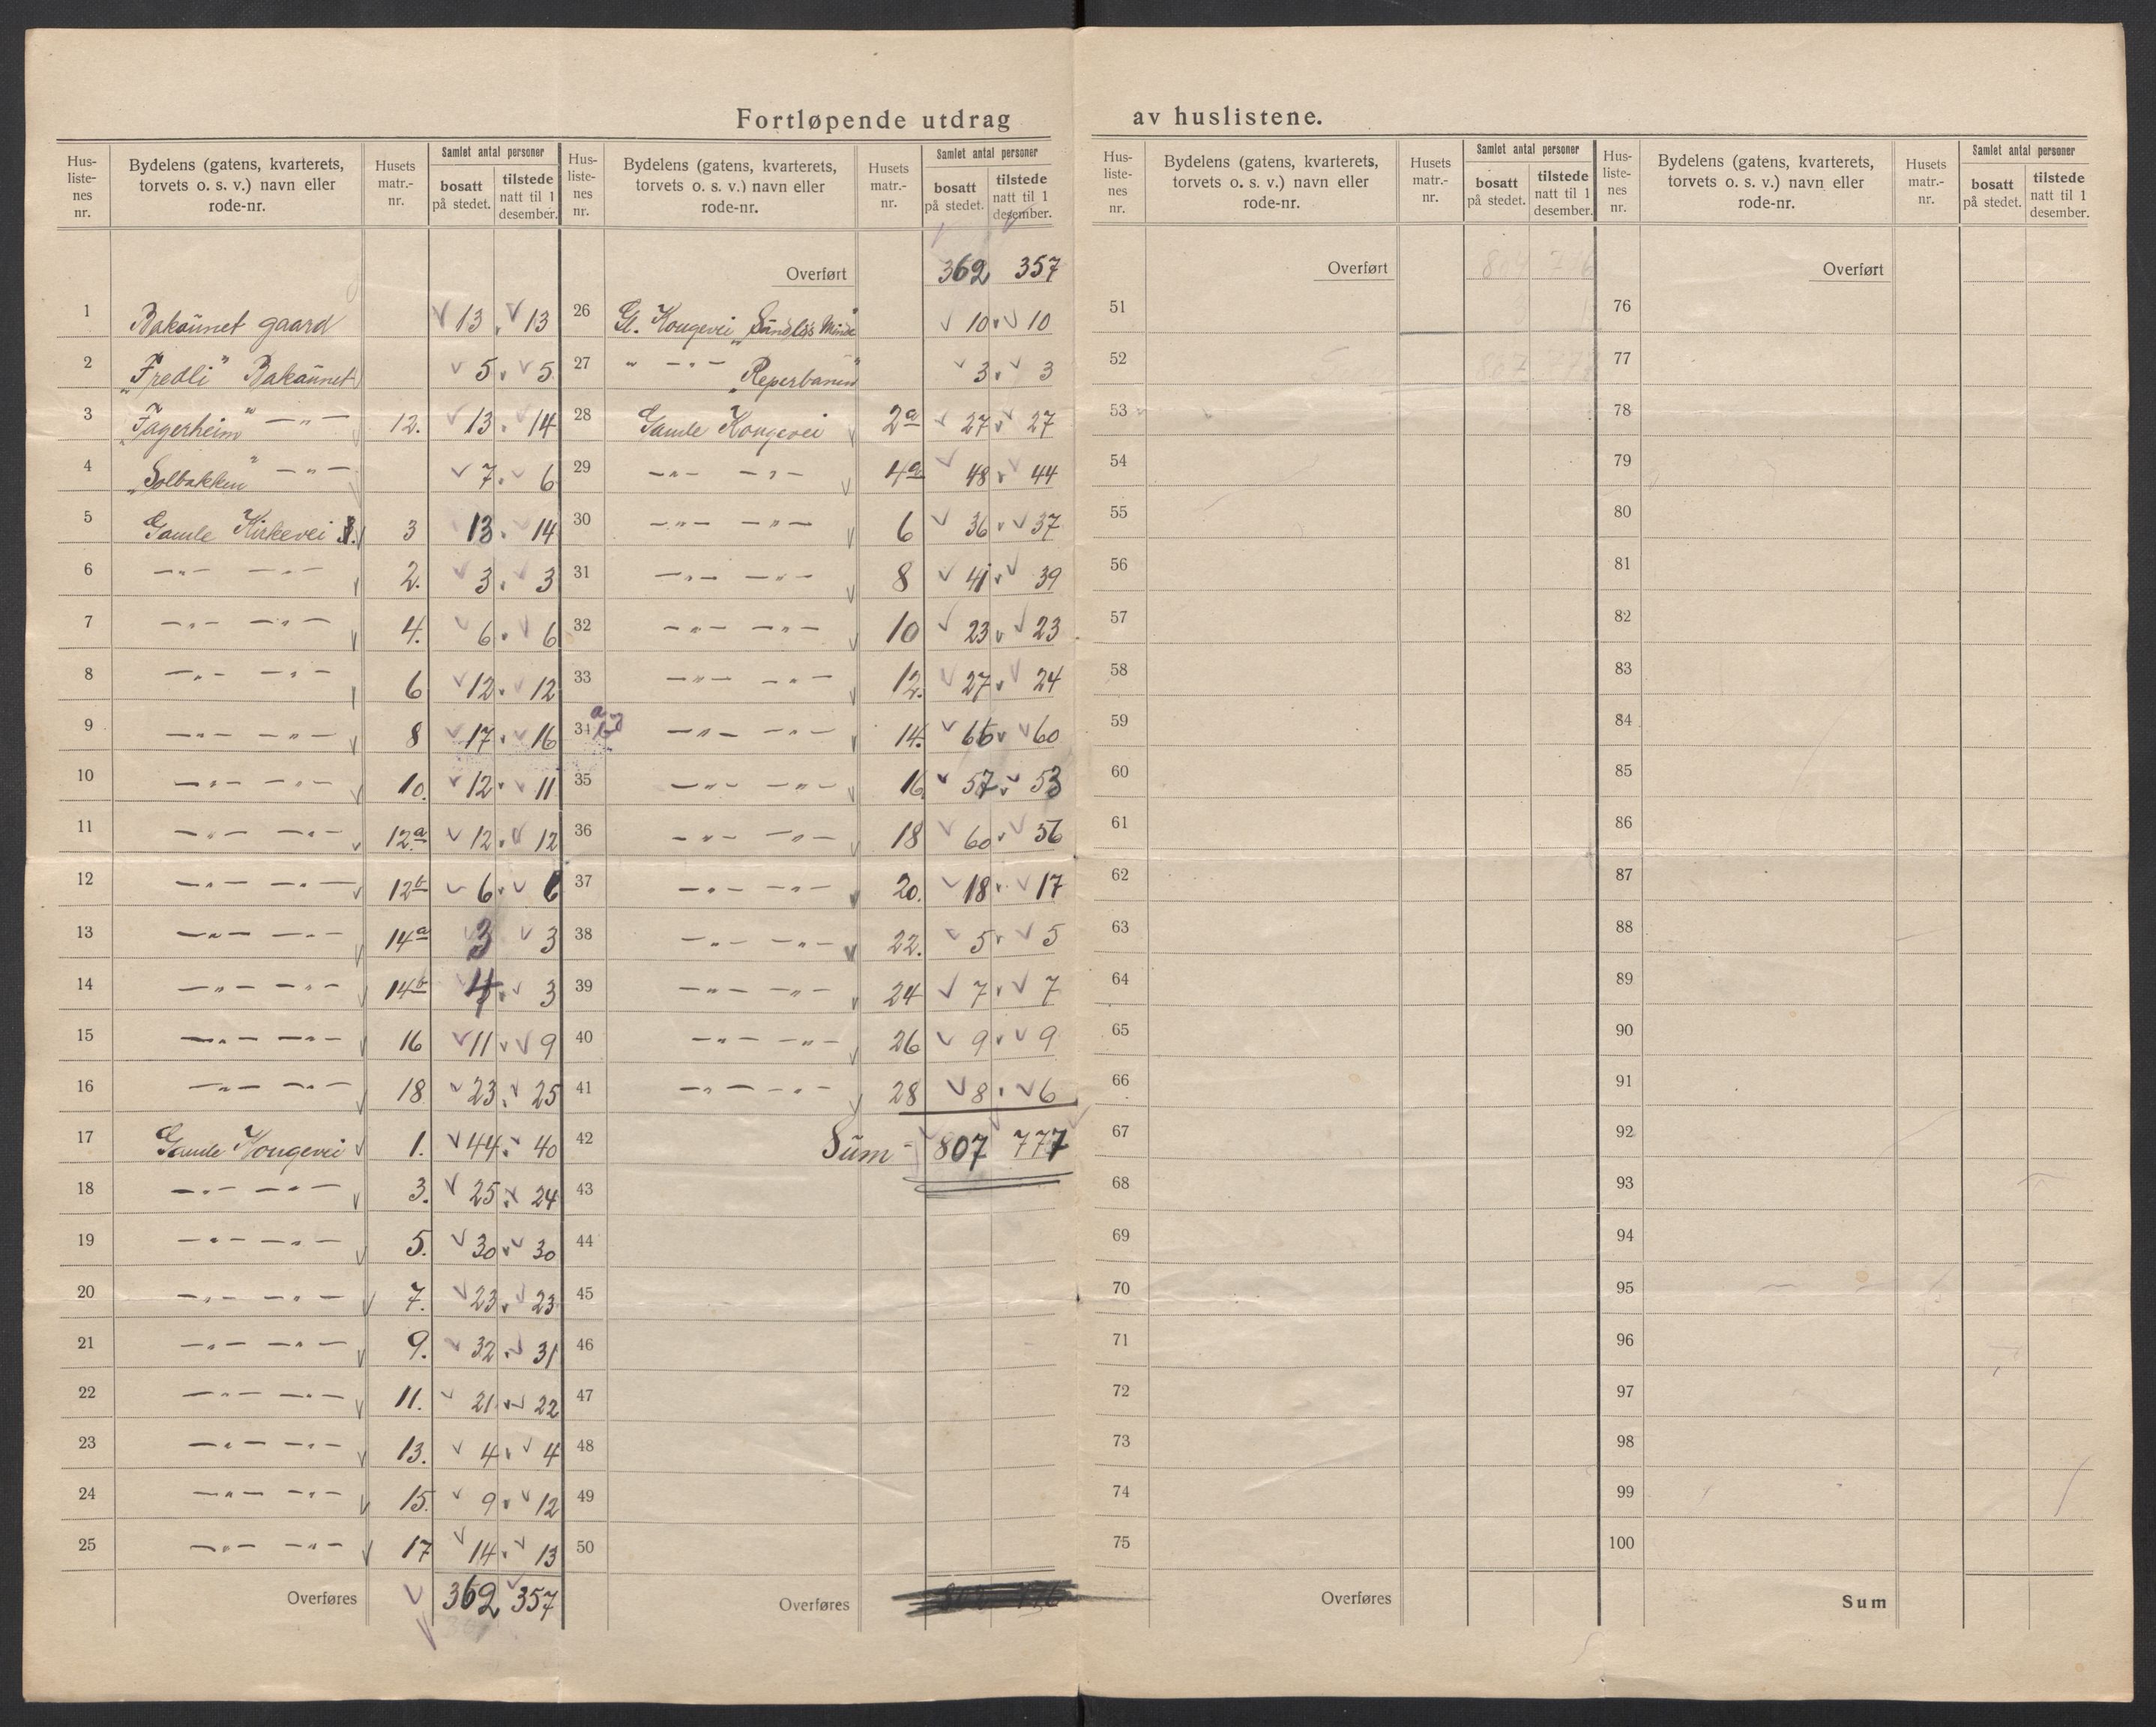 Fortløpende utdrag av huslistene.
Hus-listenes nr. | Bydelens (gatens, kvarterets, torvets o. s. v.) navn eller rode-nr. | Husets matr.-nr. | Samlet antal personer | bosatt på stedet. | tilstede natt til 1 desember.
1 Bakaunet gaard 13 13
2 „Fredli" Bakaunet 5 5
3 „Fagerheim" —"— 12. 13 14
4 „Solbakken" —"— 7 6
5 Gamle Kirkevei 3 13 14
6 —"— —"— 2. 3 3
7 —"— —"— 4. 6 6
8 —"— —"— 6 12 12
9 —"— —"— 8 17 16
10 —"— —"— 10. 12 11
11 —"— —"— 12a 12 12
12 —"— —"— 12b 6 6
13 —"— —"— 14a 3 3
14 —"— —"— 14b 4 3
15 —"— —"— 16 11 9
16 —"— —"— 18 23 25
17 Gamle Kongevei 1. 44 40
18 —"— —"— 3. 25 24
19 —"— —"— 5. 30 30
20 —"— —"— 7. 23 23
21 —"— —"— 9. 32 31
22 —"— —"— 11. 21 22
23 —"— —"— 13. 4 4
24 —"— —"— 15. 9 12
25 —"— —"— 17 14 13
Overføres 362 357
Hus-listenes nr. | Bydelens (gatens, kvarterets, torvets o. s. v.) navn eller rode-nr. | Husets matr.-nr. | Samlet antal personer | bosatt på stedet. | tilstede natt til 1 desember.
Overført 362 357
26 Gl. Kongevei Minde" 10 10
27 " —"— „Reperbanen" 3 3
28 Gamle Kongevei 2a 27 27
29 —"— —"— 4a 48 44
30 —"— —"— 6 36 37
31 —"— —"— 8 41 39
32 —"— —"— 10 23 23
33 —"— —"— 12. 27 24
34 —"— —"— 14. 66 60
35 —"— —"— 16 57 53
36 —"— —"— 18 60 56
37 —"— —"— 20. 18 17
38 —"— —"— 22. 5 5
39 —"— —"— 24 7 7
40 —"— —"— 26 9 9
41 —"— —"— 28 8 6
42 Sum 807 777
43
44
45
46
47
48
49
50
Overføres
Hus-listenes nr. | Bydelens (gatens, kvarterets, torvets o. s. v.) navn eller rode-nr. | Husets matr.-nr. | Samlet antal personer | bosatt på stedet. | tilstede natt til 1 desember.
Overført
51
52
53
54
55
56
57
58
59
60
61
62
63
64
65
66
67
68
69
70
71
72
73
74
75
Overføres
Hus-listenes nr. | Bydelens (gatens, kvarterets, torvets o. s. v.) navn eller rode-nr. | Husets matr.-nr. | Samlet antal personer | bosatt på stedet. | tilstede natt til 1 desember.
Overført
76
77
78
79
80
81
82
83
84
85
86
87
88
89
90
91
92
93
94
95
96
97
98
99
100
Sum